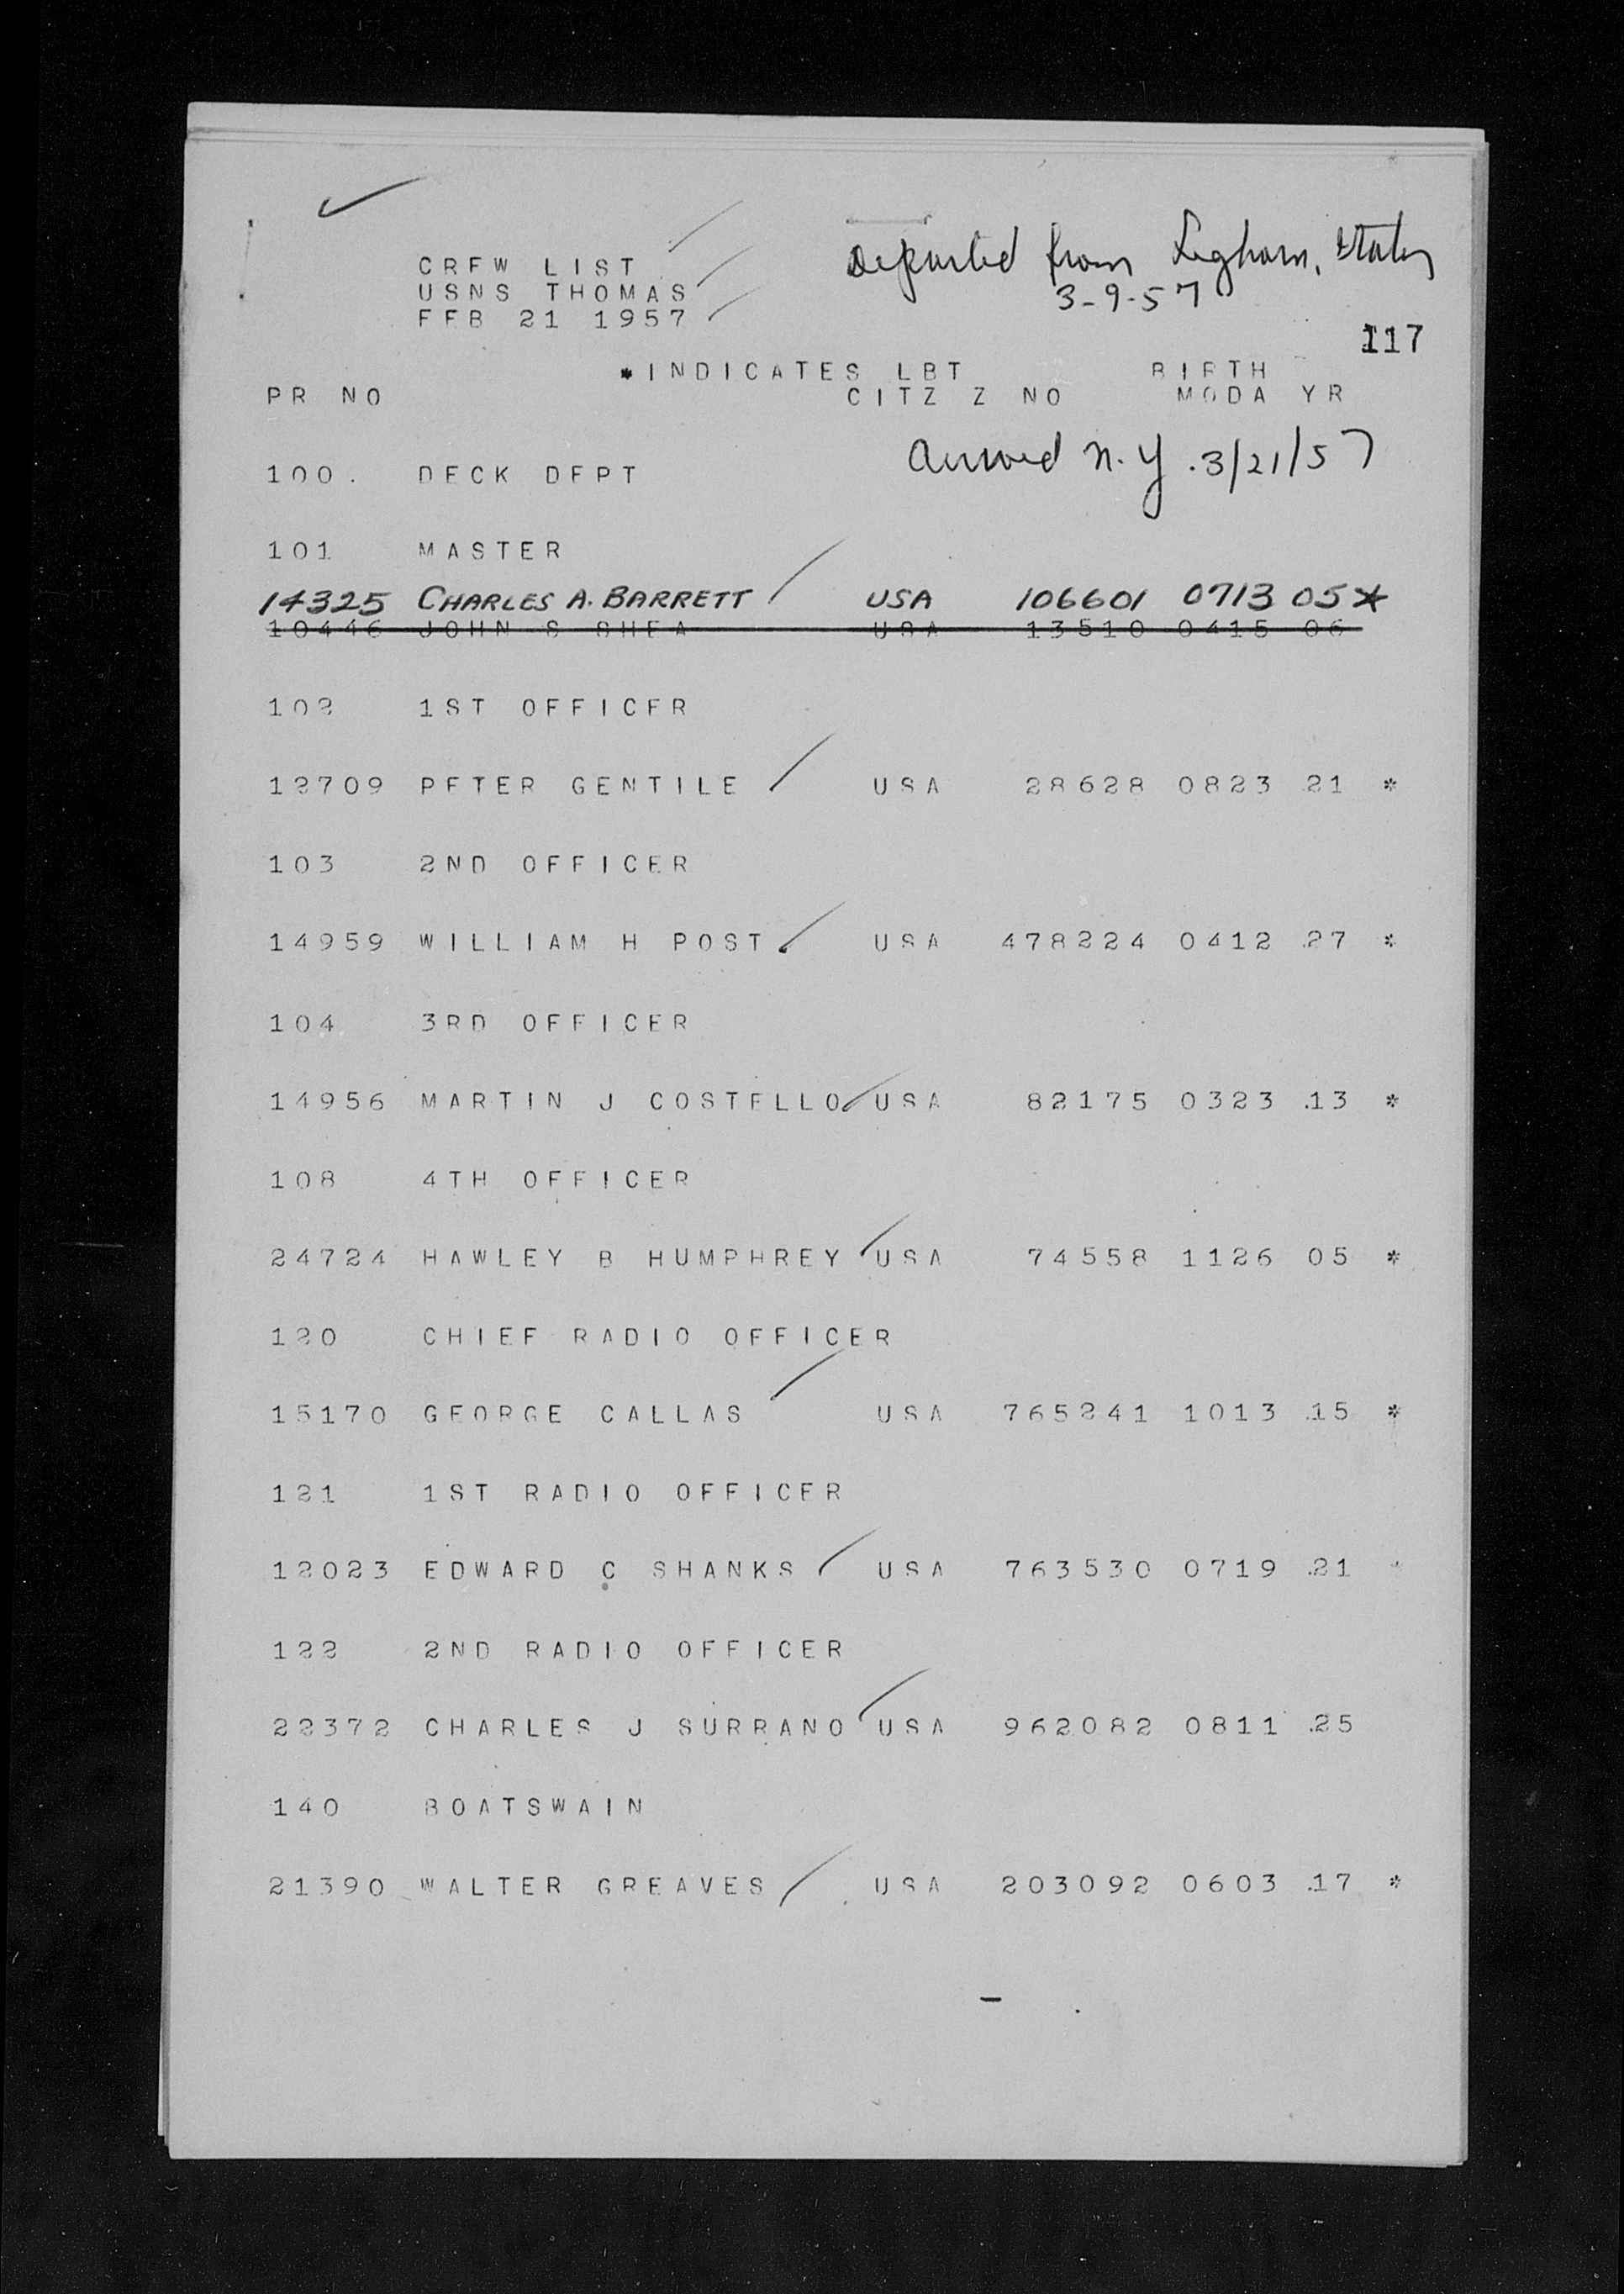 CREW LIST
USNS THOMAS
FEB 21 1957
Departed from Leghorn, Italy
3-9-57
117
*INDICATES LBT BIRTH
PR NO CITZ Z NO MODA YR
100. DECK DEPT
Arrived N.Y. 3/21/57
101 MASTER
14325 CHARLES A. BARRETT USA 106601 0713 05*
10446 JOHN S SHEA USA 13510 0415 06
102 1ST OFFICER
12709 PETER GENTILE USA 28628 0823 21 *
103 2ND OFFICER
14959 WILLIAM H POST USA 478224 0412 27 *
104 3RD OFFICER
14956 MARTIN J COSTELLO USA 82175 0323 13 *
108 4TH OFFICER
24724 HAWLEY B HUMPHREY USA 74558 1126 05 *
120 CHIEF RADIO OFFICER
15170 GEORGE CALLAS USA 765241 1013 15 *
121 1ST RADIO OFFICER
12023 EDWARD C SHANKS USA 763530 0719 21 *
122 2ND RADIO OFFICER
22372 CHARLES J SURRANO USA 962082 0811 25
140 BOATSWAIN
21390 WALTER GREAVES USA 203092 0603 17 *